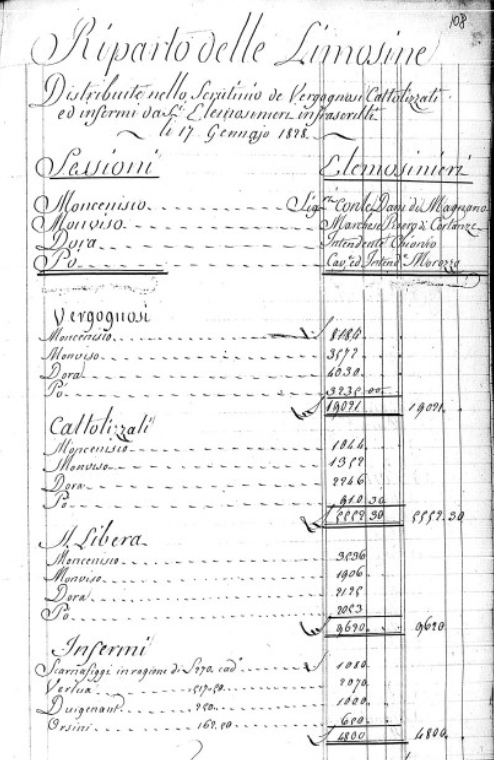 108
Riparto delle Limosine
Distribuite nello Scrutinio de Vergognosi Cattolizzati
ed infermi da Sri Elemosinieri infrascritti
li 17. Gennajo 1828.
Sessioni Elemosinieri
Moncenisio Sigri Conte di Magnano
Monviso Marchese di Cortanze
Dora Intendente Chionio
Po Cavre ed Intende Morozzo
Vergognosi
Moncenisio
Monviso 3577
Dora 4030
Po
19091 19091
Cattolizzati
Moncenisio 1044
Monviso
Dora
Po 910.30
5552.30 5552.30
A. Libera
Moncenisio 3536
Monviso 1906
Dora
Po
9620 9620
Infermi
Scarnafiggi in ragione di cad 1080
Vertua 2070
Duigenant 250 1000
Orsini 162.50 650
4800 4800